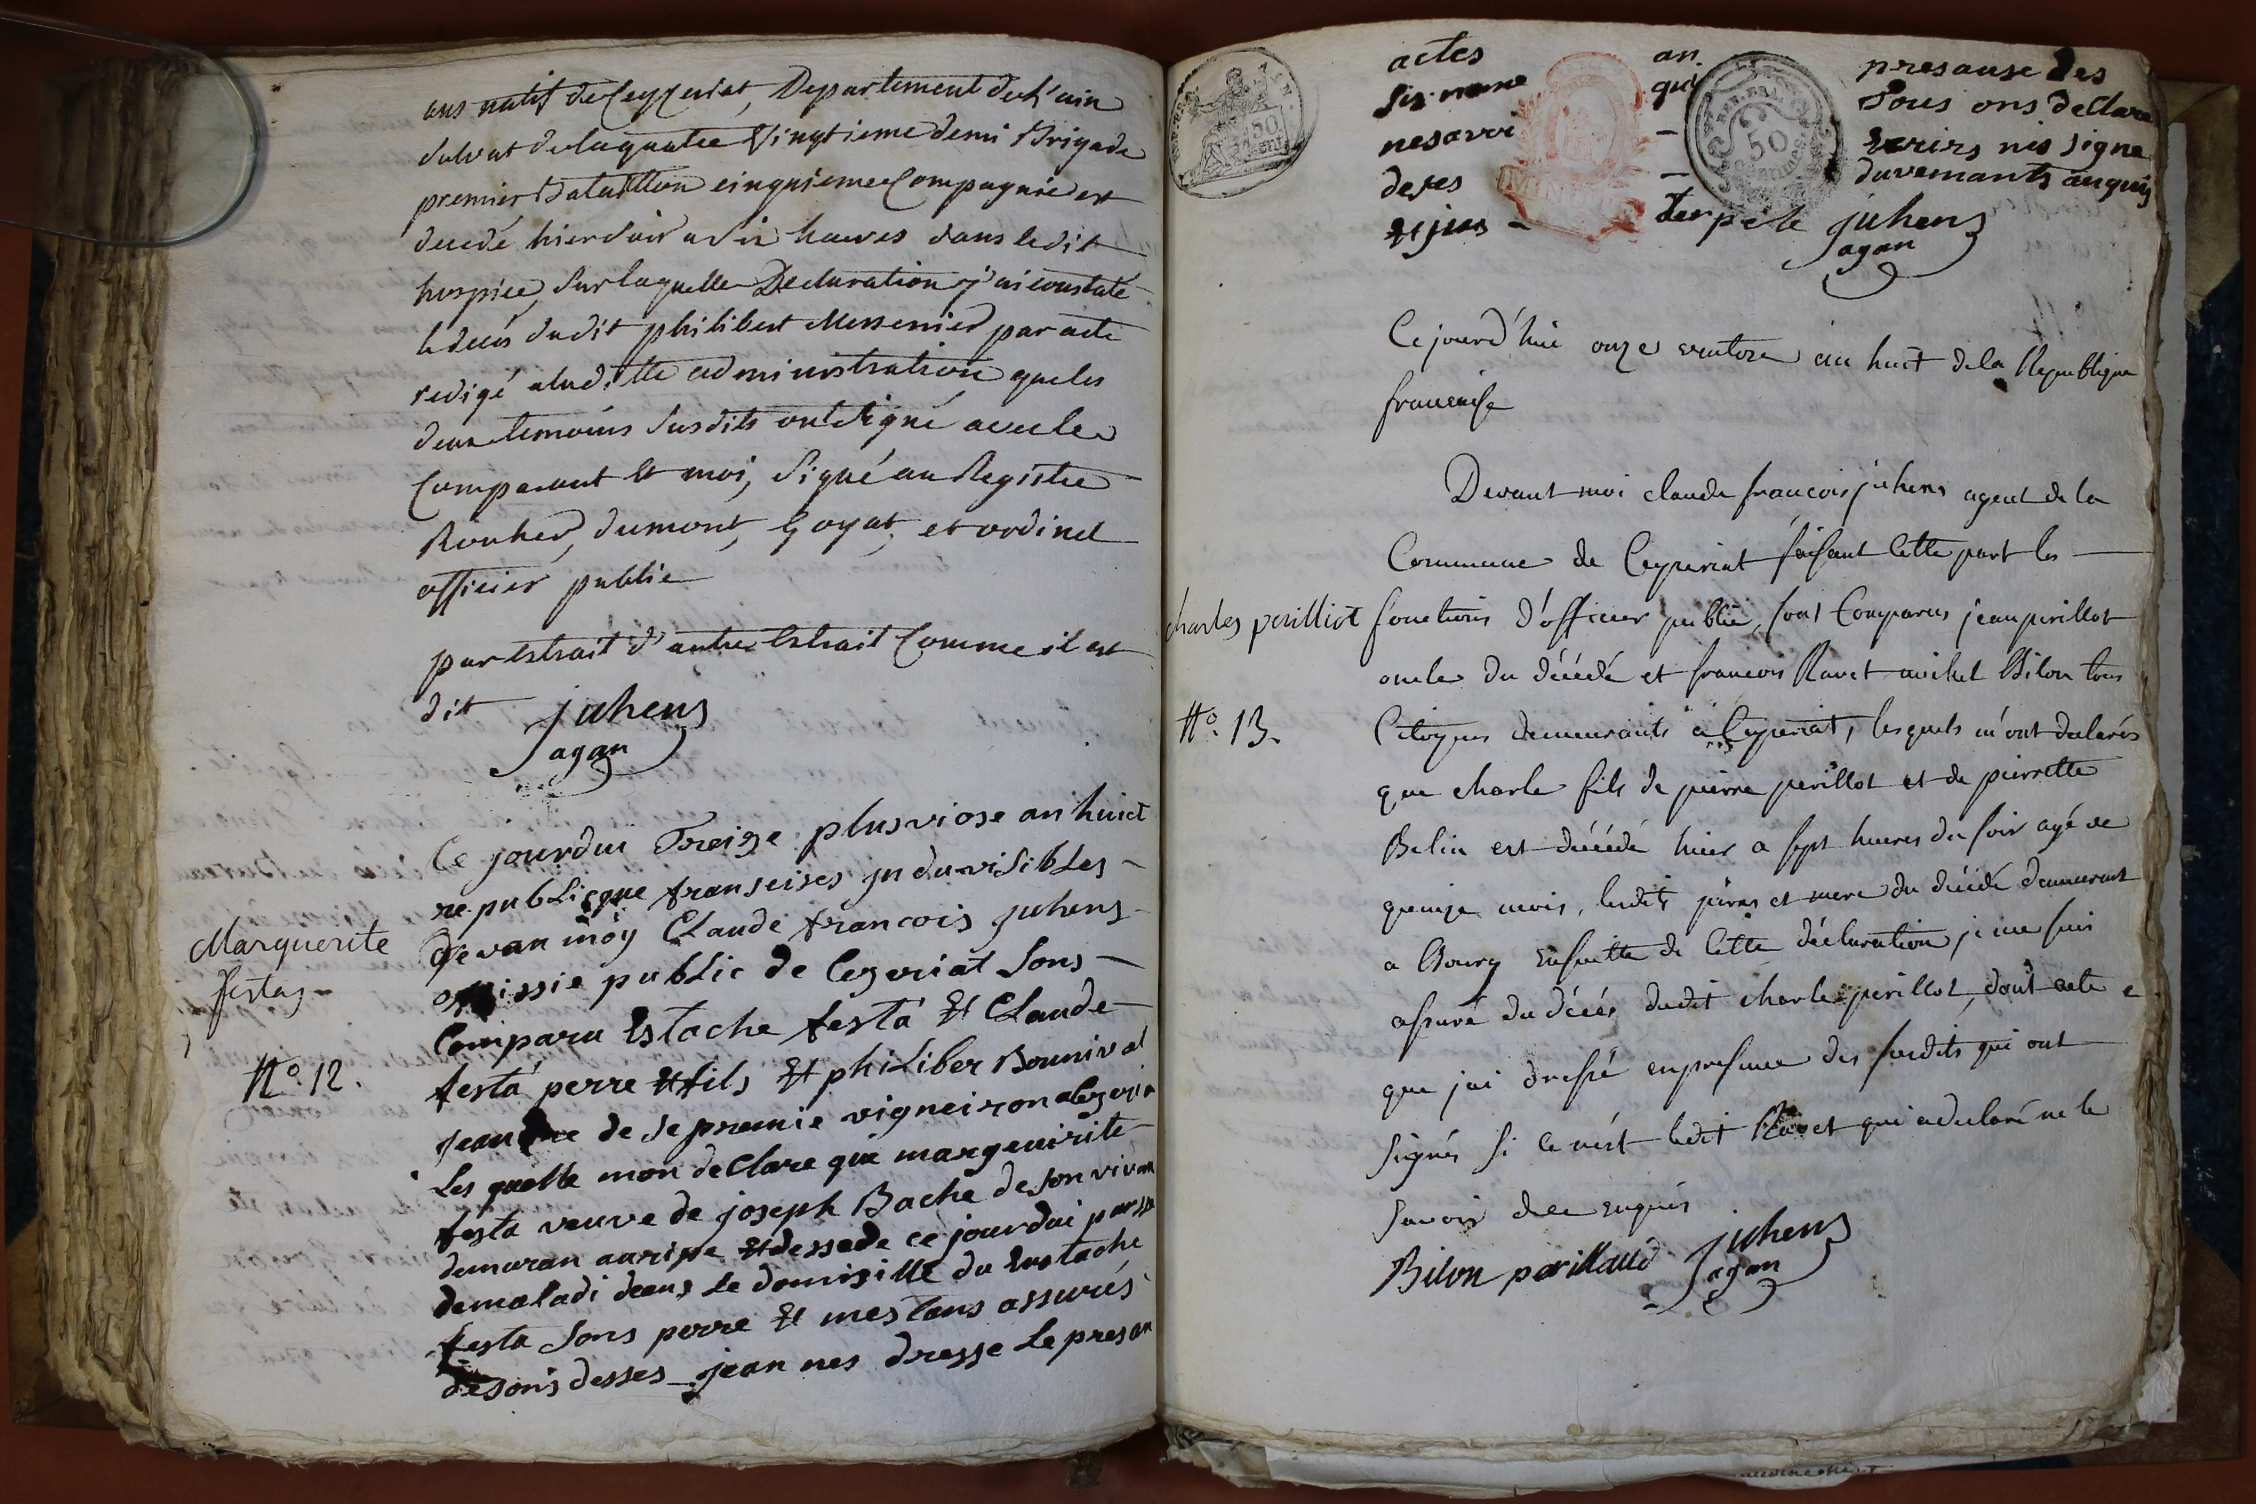 ans natif de Ceyzeriat, Departement de l'ain
soldat de la quatre Vingtieme demi Brigade
premier Bataillon cinquieme Compagnie est
decedé hier soir a six heures dans ledit
hospice, Sur laquelle Declaration j'ai constaté
le deces dudit philibert Messenier par acte
redigé a lad. itte administration que les
deux temoins susdits ont signé avec le
Comparant et moi, signé au Registre
Rouher, dumont, goyat, et ordinet
officier public
par Extrait d'autre Extrait Comme il est
dit juhens
agan
Ce jourdui Treize plusviose an huict
re publicque franseises jn du visibles
devan moy Claude francois juhens
public de Cezeriat sons
Comparu Estache festa et Claude
festa perre et fils et philiber Bounival
jean de se premie vigneiron a Cezeria
Les quelle mon declare que margeuirite
festa veuve de joseph Bache de son vivan
demuran au et dessede ce jourdui par sa
de maladi dans le domisille du Eustache
festa sons perre et mes tans assurés
de sons desses jean nes dresse le presan
Marguerite
festas
N° 12.
actes an presause des
six nome qui Sous ons declare
ne savoi – Ecrirs nis signe
de ses – duvemants auquis
et jus – terpele juhens
agan
Ce jourd'hui onze ventose an huit de la Republique
francaise
Devant moi claude francois juhens agent de la
Commune de Ceyzeriat faisant Cette part les
charles perilliot fonctions d'officier public, sont Comparus jean perillot
oncle du décédé et francois Ravet michel Bilon tous
N° 13. Citoyens demeurants a Ceyzeriat, lesquels m'ont declarés
que charle fils de pierre perillot et de pierrette
Belin est décédé hier a sept heures du soir agé de
quinze mois, lesdits pères et mere du décédé demeurant
a Bourg Ensuitte de Cette déclaration je me suis
assuré du décés dudit charle perillot, dont acte
que jai dressé en presence des susdits qui ont
signés si ce n'est ledit Ravet qui a declaré ne le
savoir de ce enquis
Bilon perillaud juhens
agan